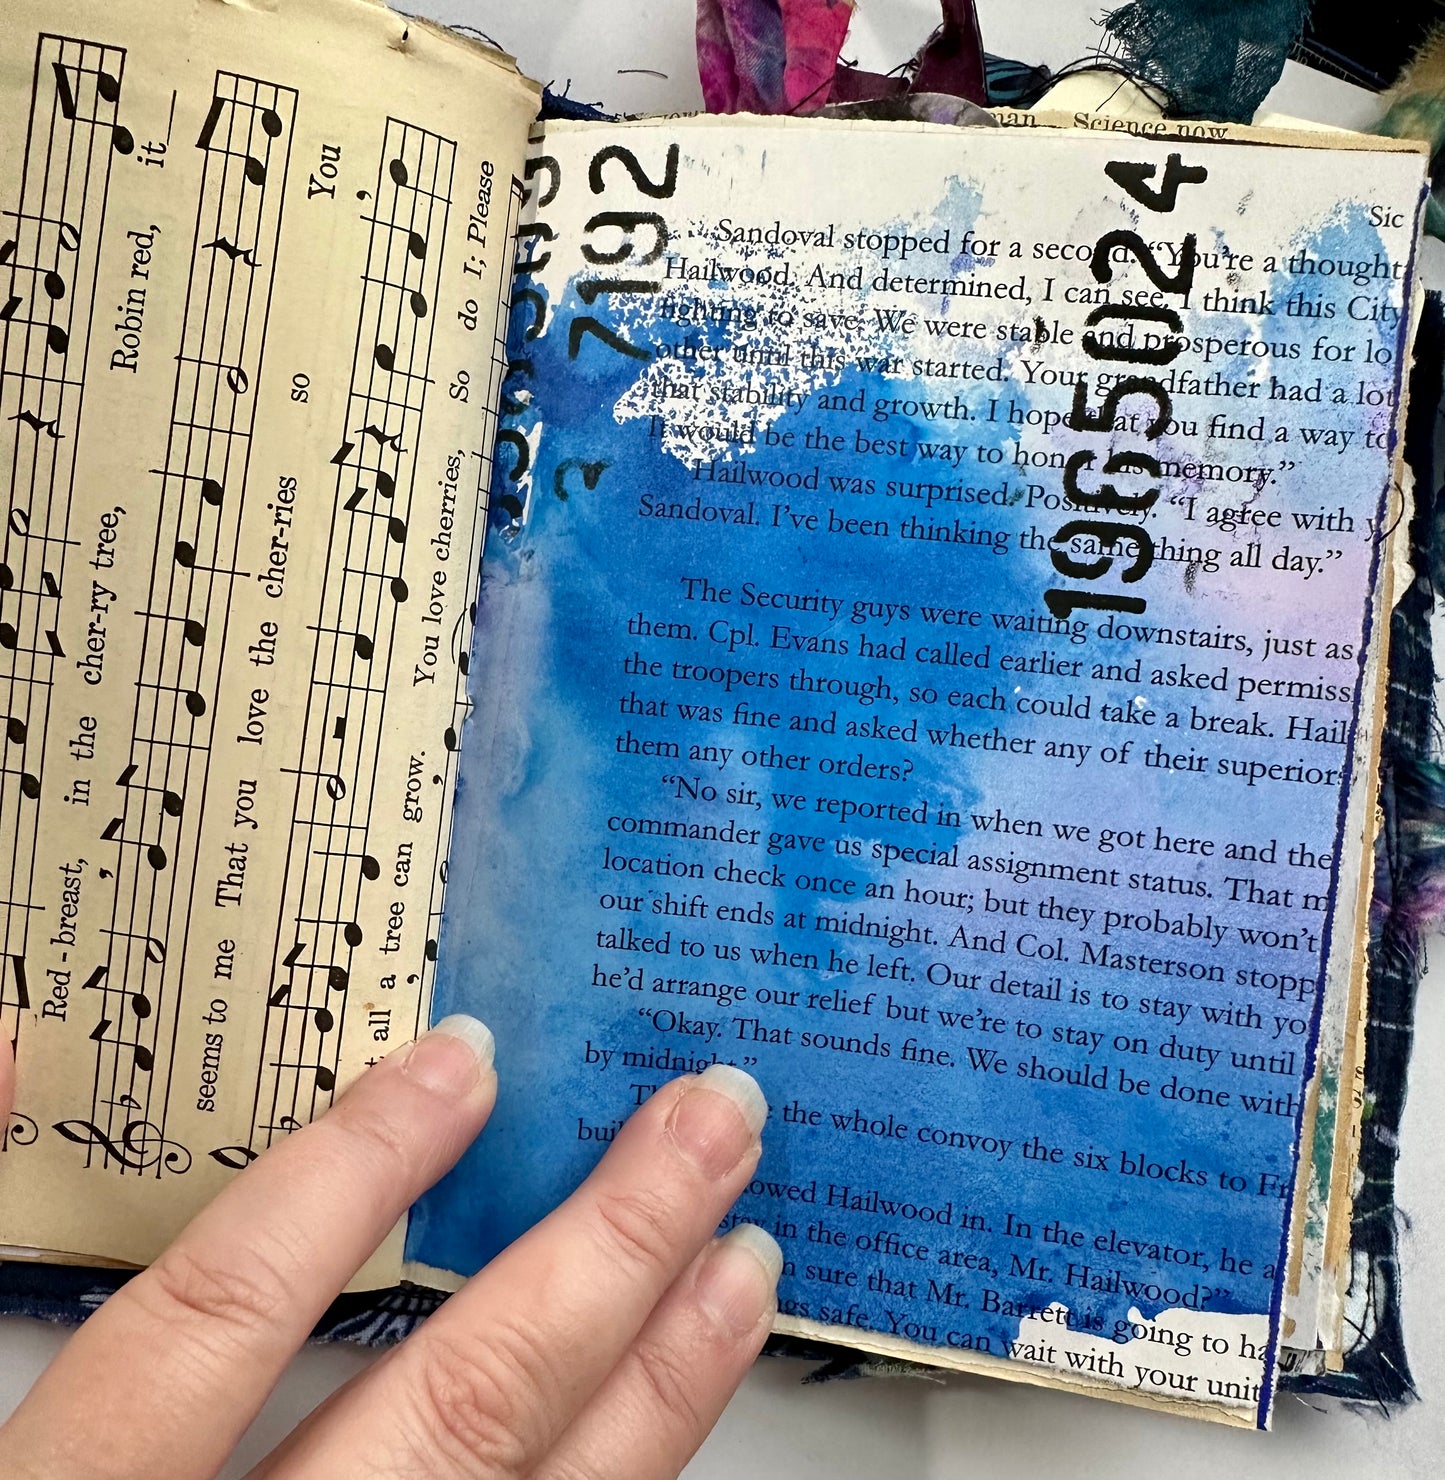 Robin red, it
Red-breast, in the cher-ry tree,
You so
seems to me That you love the cher-ries
all a tree can grow. You love cherries, So do I; Please
7192
2
1965024
man Science now
Sic
Sandoval stopped for a second. “You’re a thought
Hailwood. And determined, I can see. I think this City
fighting to save. We were stable and prosperous for lo
other until this war started. Your grandfather had a lot
that stability and growth. I hope that you find a way to
It would be the best way to honor his memory.”
Hailwood was surprised. Positively. “I agree with y
Sandoval. I’ve been thinking the same thing all day.”
The Security guys were waiting downstairs, just as
them. Cpl. Evans had called earlier and asked permiss
the troopers through, so each could take a break. Hail
that was fine and asked whether any of their superiors
them any other orders?
“No sir, we reported in when we got here and the
commander gave us special assignment status. That m
location check once an hour; but they probably won’t
our shift ends at midnight. And Col. Masterson stopp
talked to us when he left. Our detail is to stay with yo
he’d arrange our relief but we’re to stay on duty until
“Okay. That sounds fine. We should be done with
by midnight.”
the whole convoy the six blocks to Fr
bui
owed Hailwood in. In the elevator, he a
stay in the office area, Mr. Hailwood?”
sure that Mr. Barrett is going to ha
ngs safe. You can wait with your unit